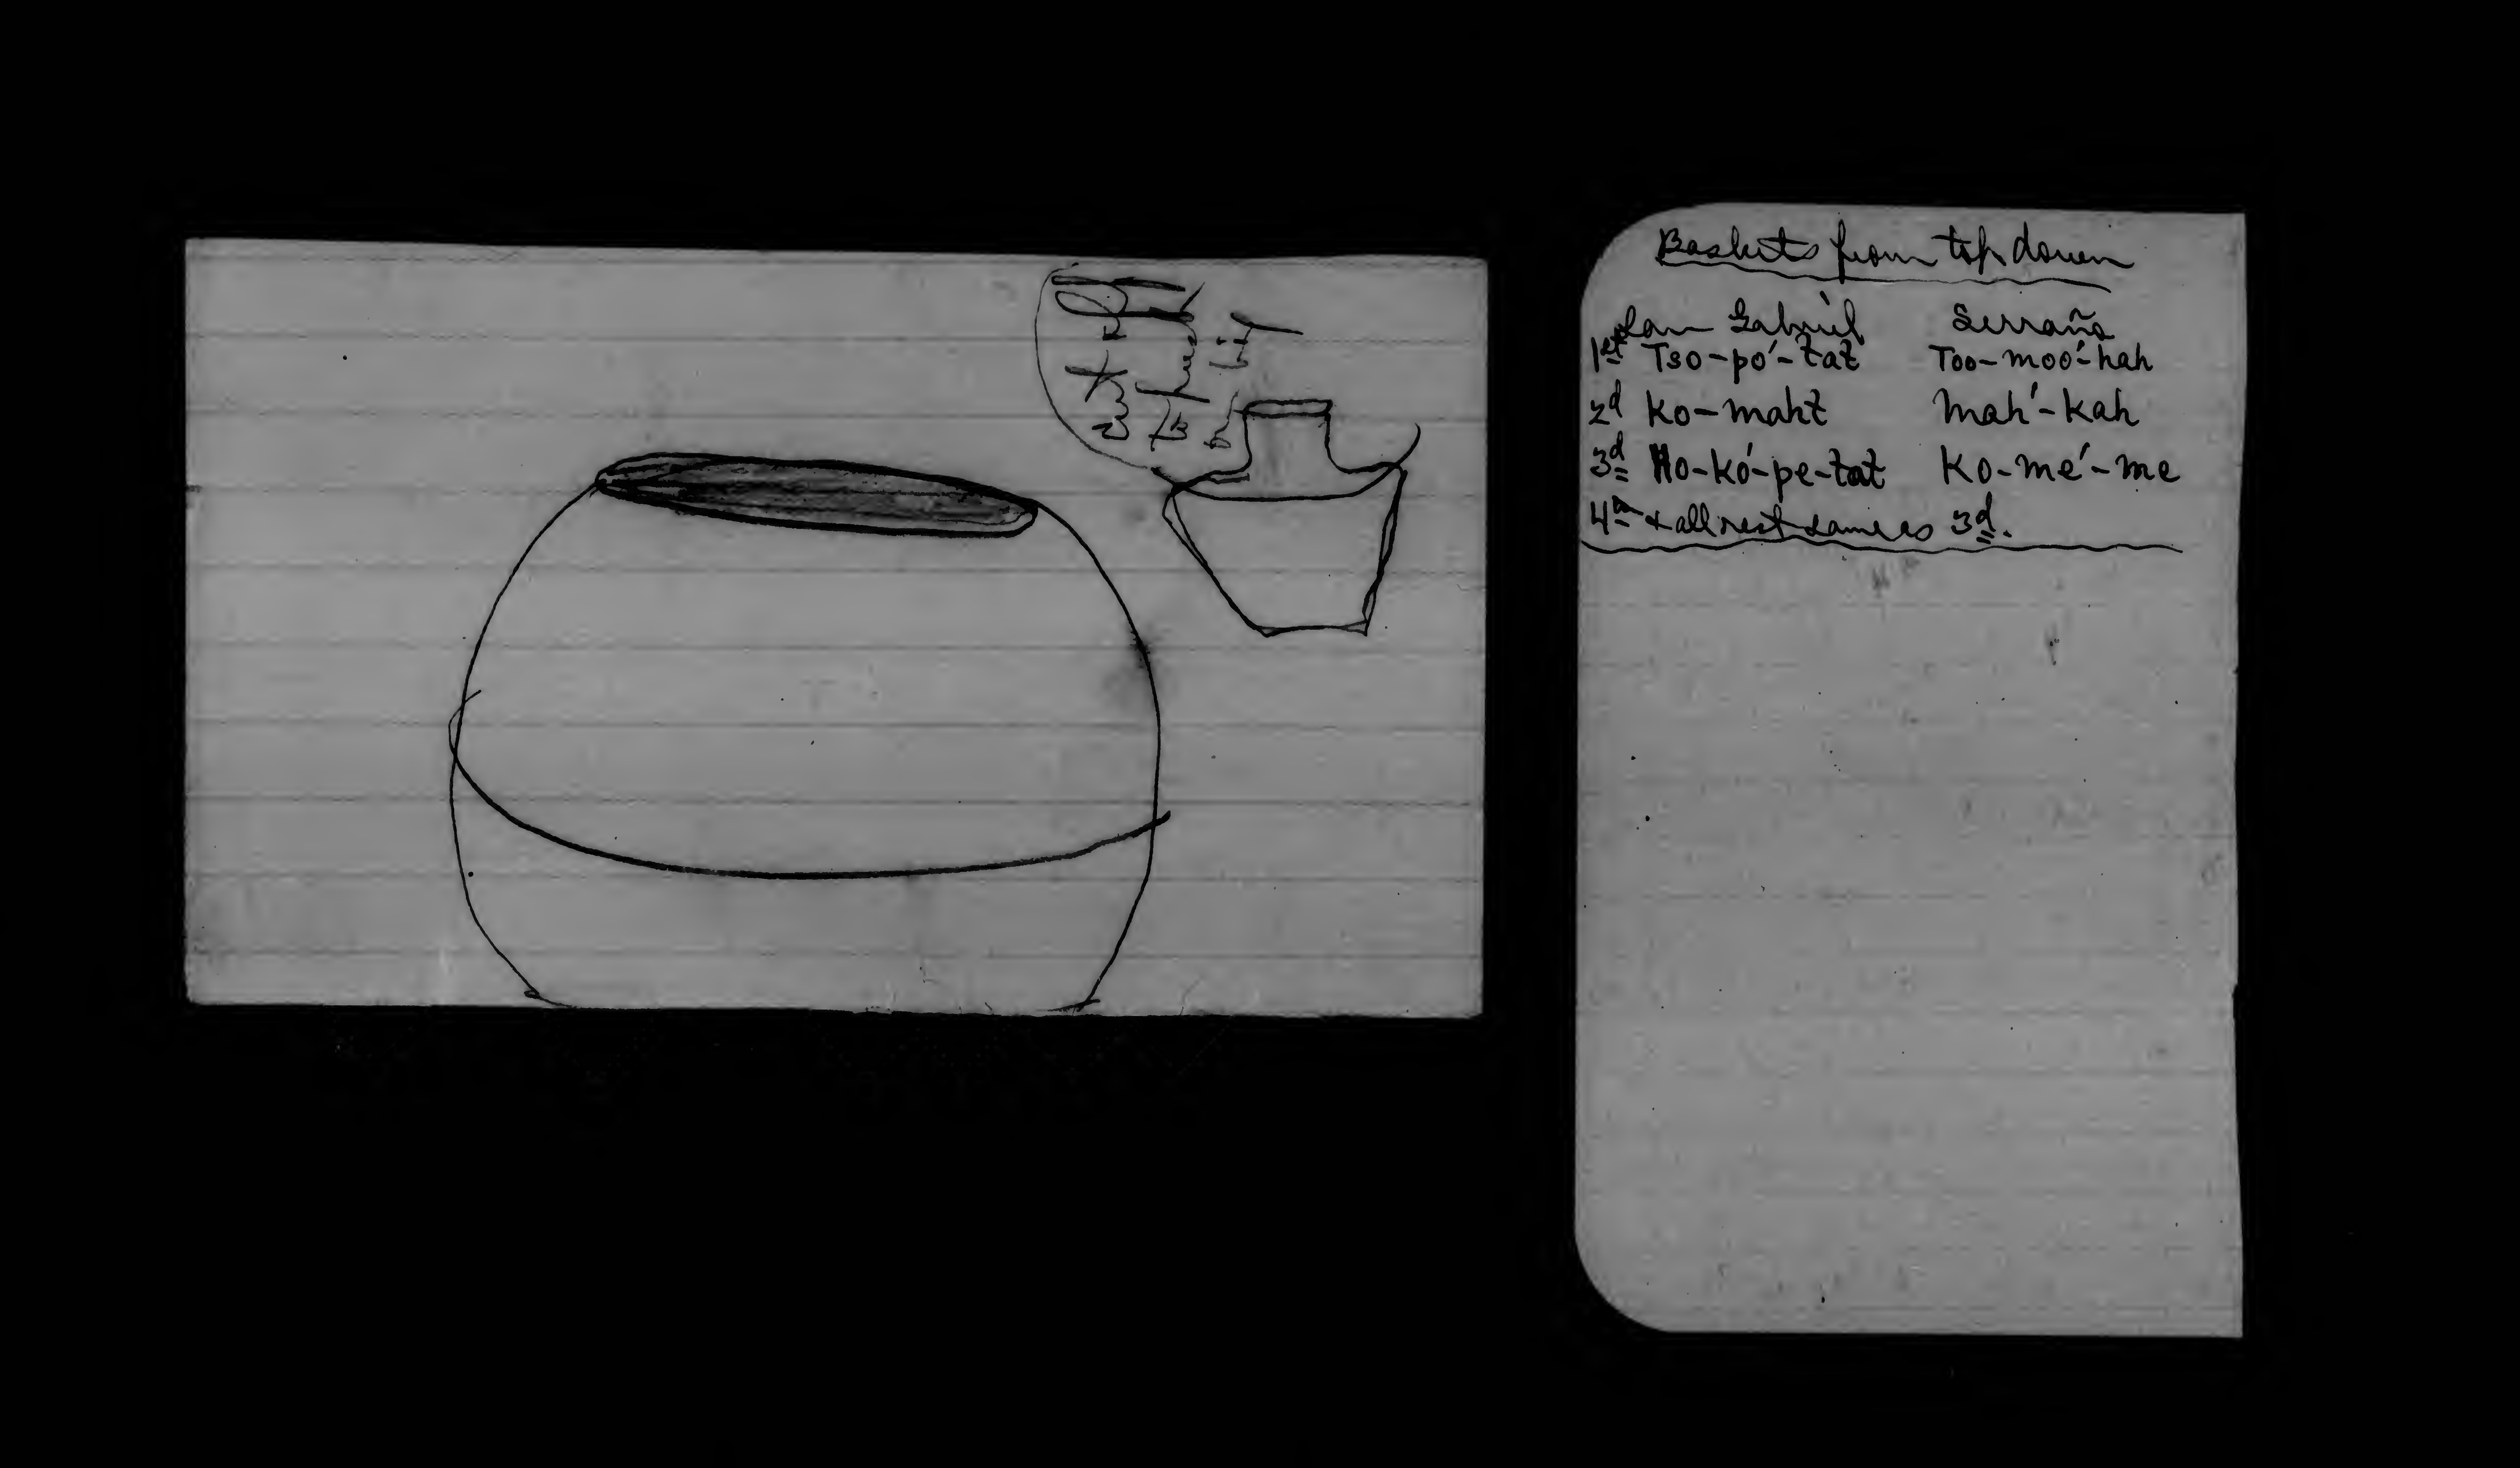 Baskets from top down
San Gabriel Serraño
1st Tso-pó-tat Too-moo'-hah
2d Ko-maht Mah'-kah
3d Ho-kó-pe-tat Ko-me'-me
4th & all rest same as 3d.